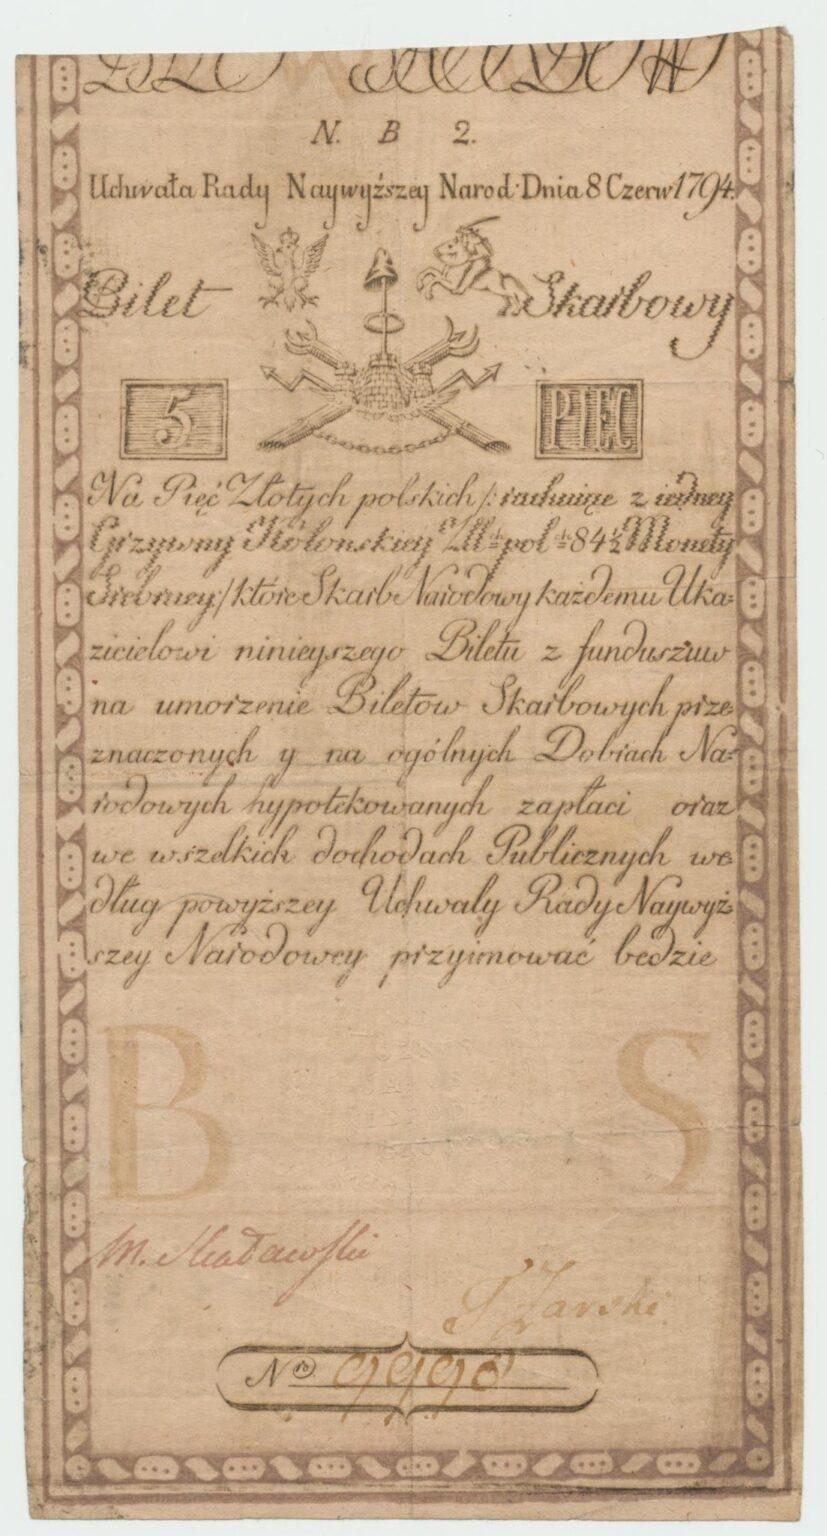 N. B 2.
Uchwała Rady Naywyższey Narod. Dnia 8 Czerw 1794.
Bilet Skarbowy
5 PIĘĆ
Na Pięć Złotych polskich /: rachuiąc z iedney
Grzywny Kolonskiey Zll: pol: 84½ Monety
Srebrney:/ które Skarb Narodowy każdemu Uka-
zicielowi ninieyszego Biletu z funduszuw
na umorzenie Biletow Skarbowych prze-
znaczonych y na ogólnych Dobrach Na-
rodowych hypotekowanych zapłaci oraz
we wszelkich dochodach Publicznych we-
dług powyższey Uchwaly Rady Naywyż-
szey Narodowey przyimować będzie
B S
M. Skadawski
Zarski
No 9998